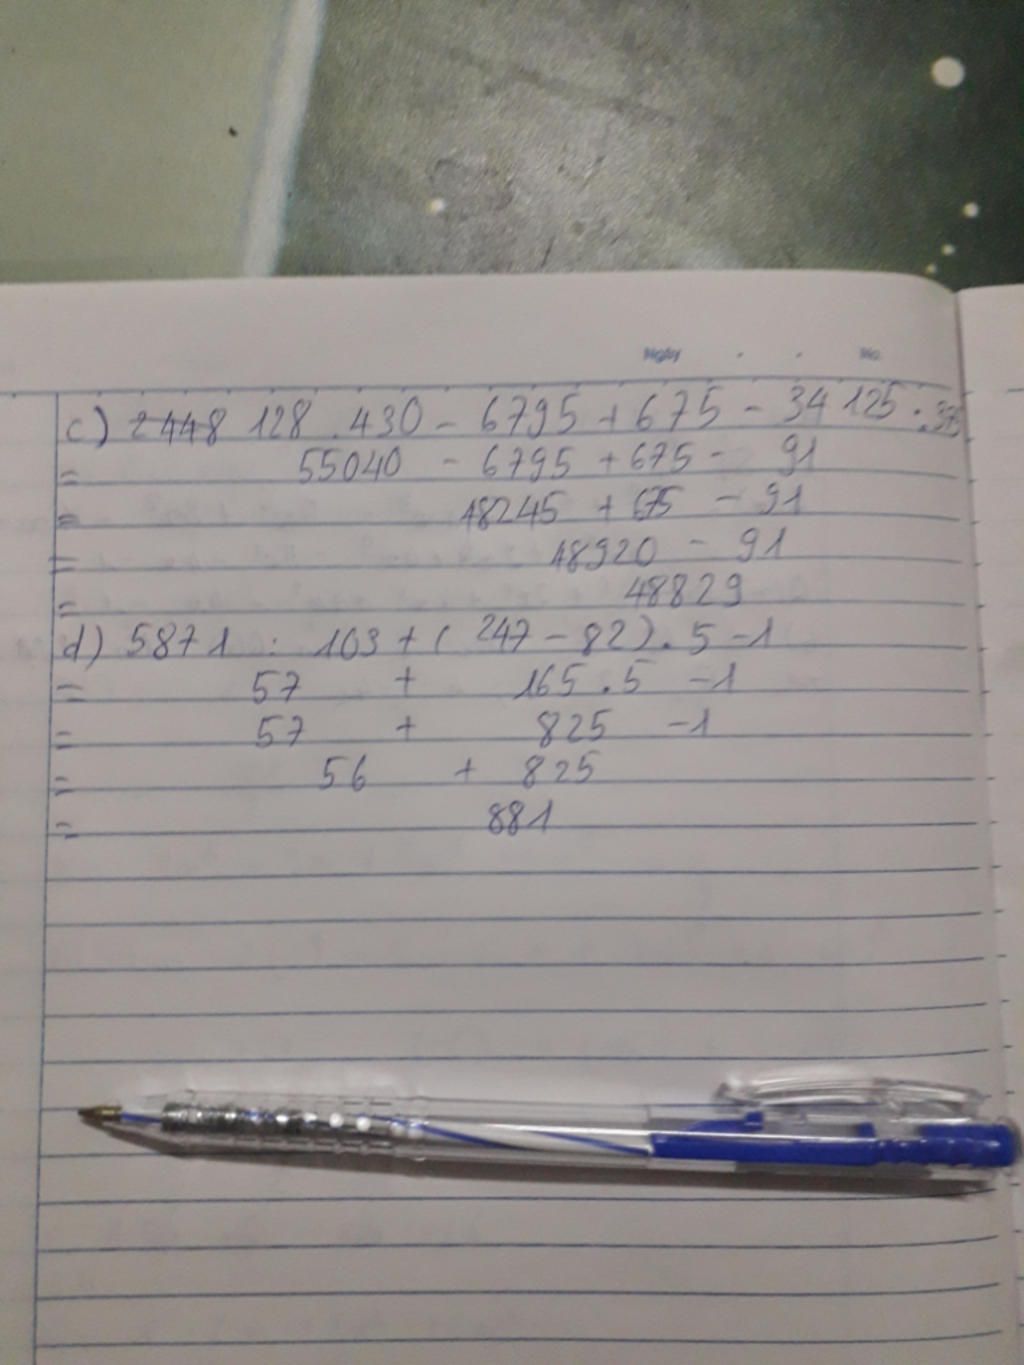 Ngày . . No.
c) 2448 128 . 430 - 6795 + 675 - 34 125 : 375
= 55040 - 6795 + 675 - 91
= 48245 + 675 - 91
= 48920 - 91
= 48829
d) 5871 : 103 + ( 247 - 82 ) . 5 - 1
= 57 + 165 . 5 - 1
= 57 + 825 - 1
= 56 + 825
= 881